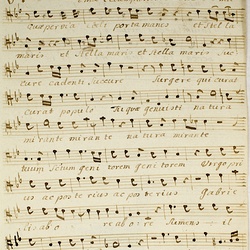 quae pervia caeli porta manes et stella
maris et stella maris et stella maris suc
cure cadenti succure surgere qui curat
curat populo Tu quae genuisti natura
mirante mirante natura mirante
tuum sanctum genitorem genitorem Virgo pri
us ac posterius ac posterius Gabrie
lis ab o re ab o re sumens il